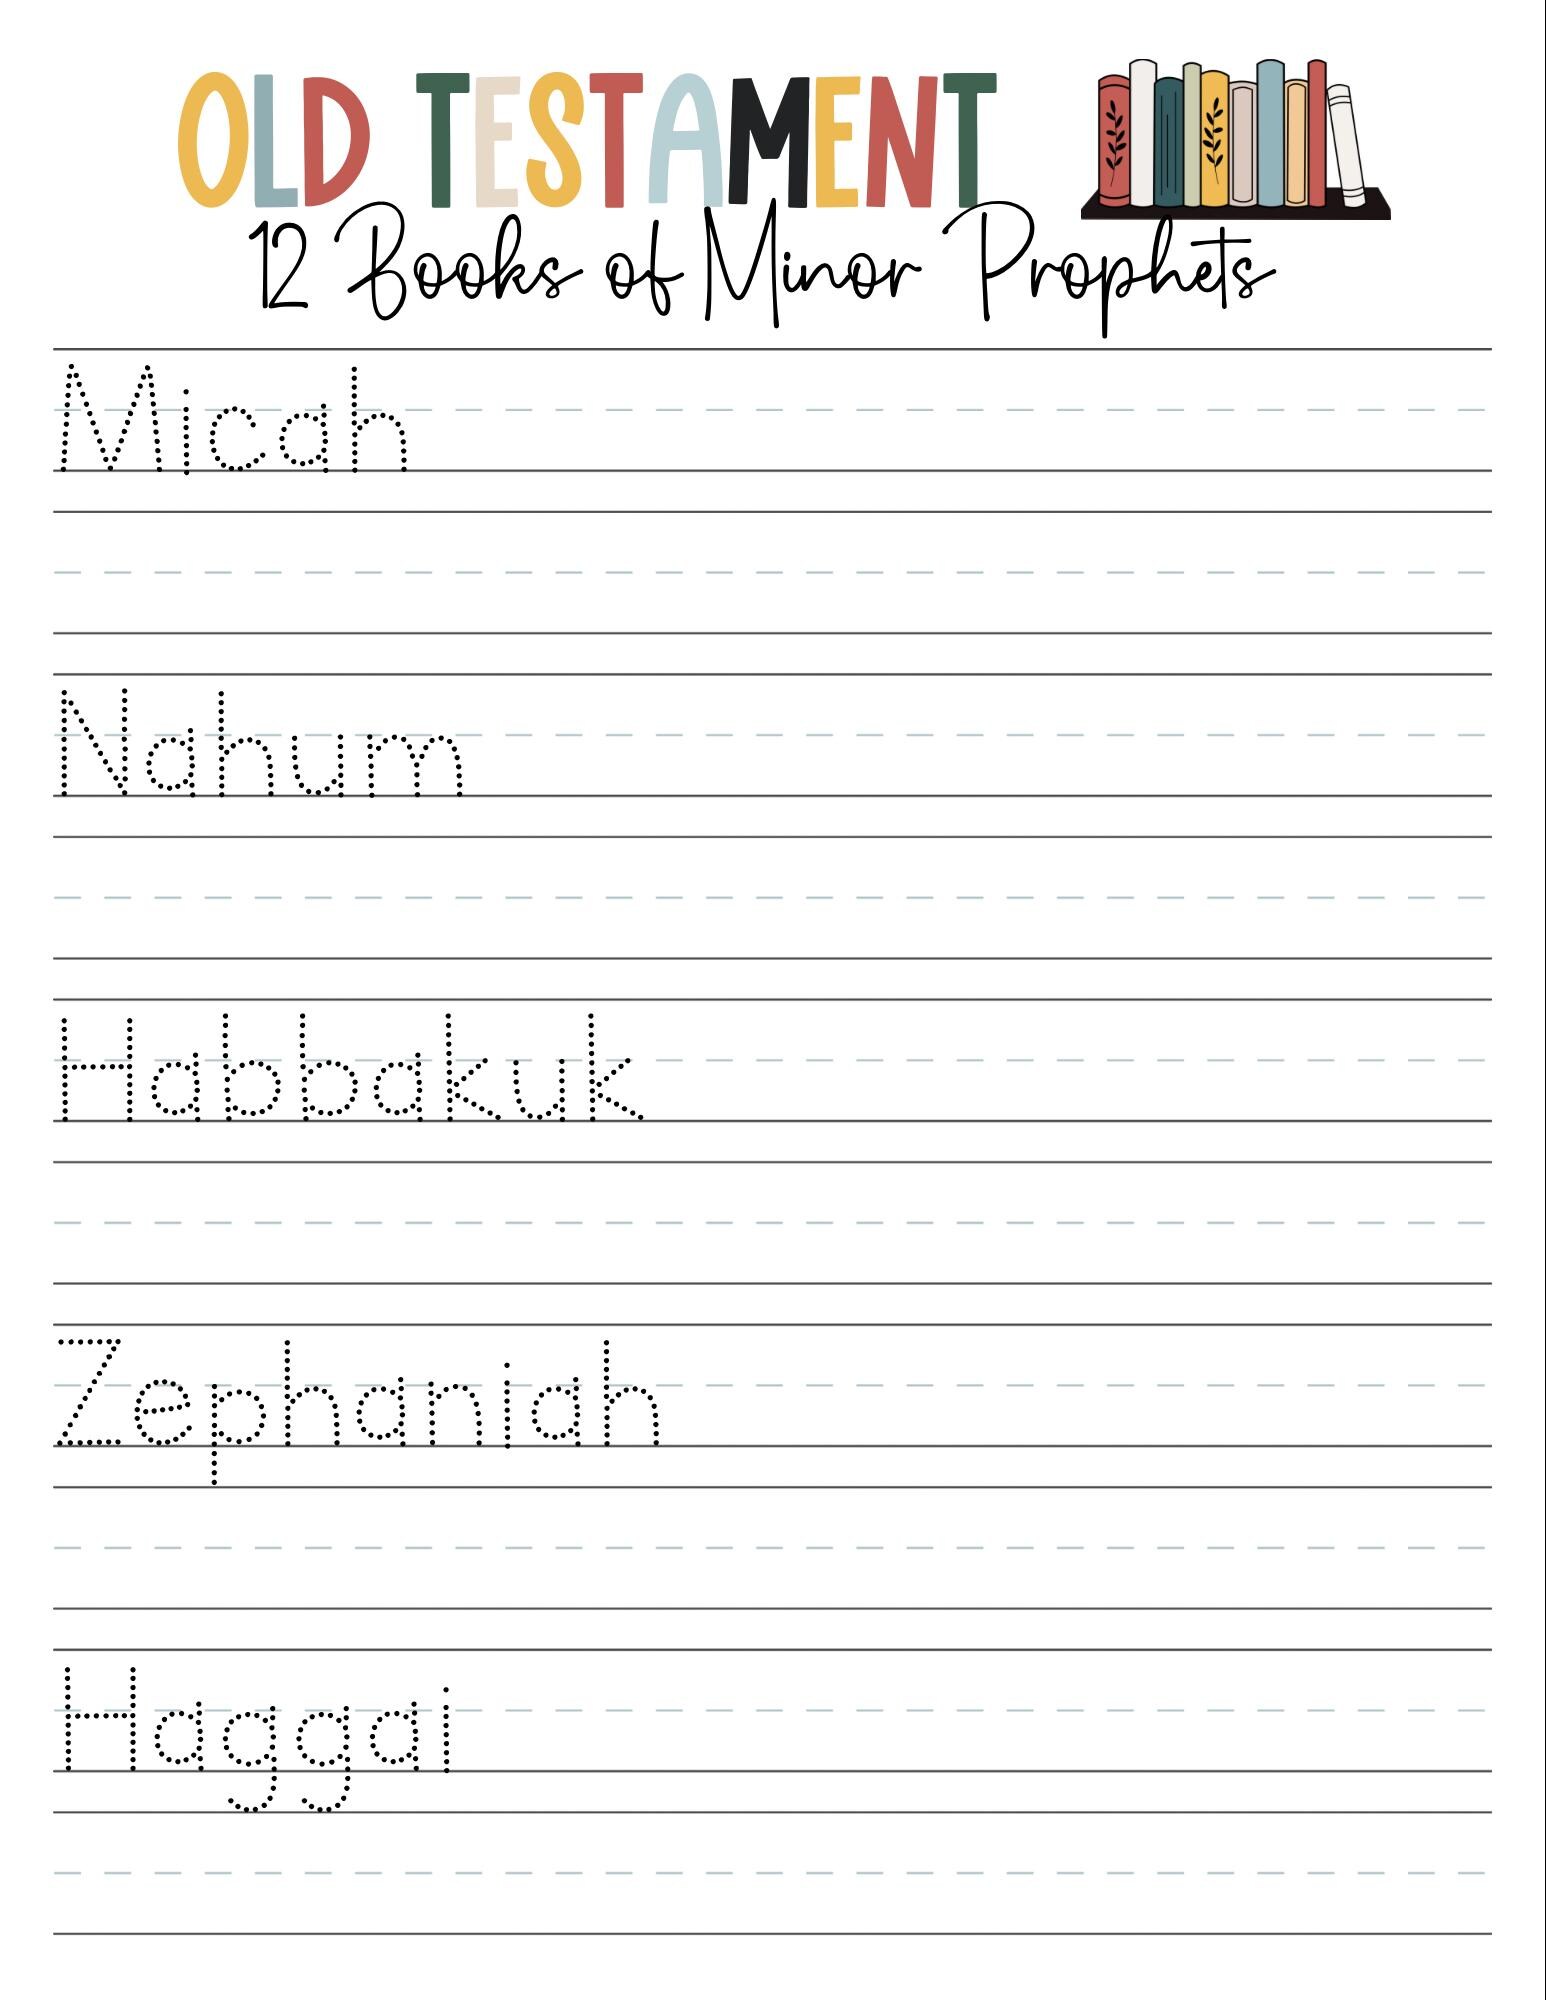 OLD TESTAMENT
12 Books of Minor Prophets
Micah
Nahum
Habbakuk
Zephaniah
Haggai